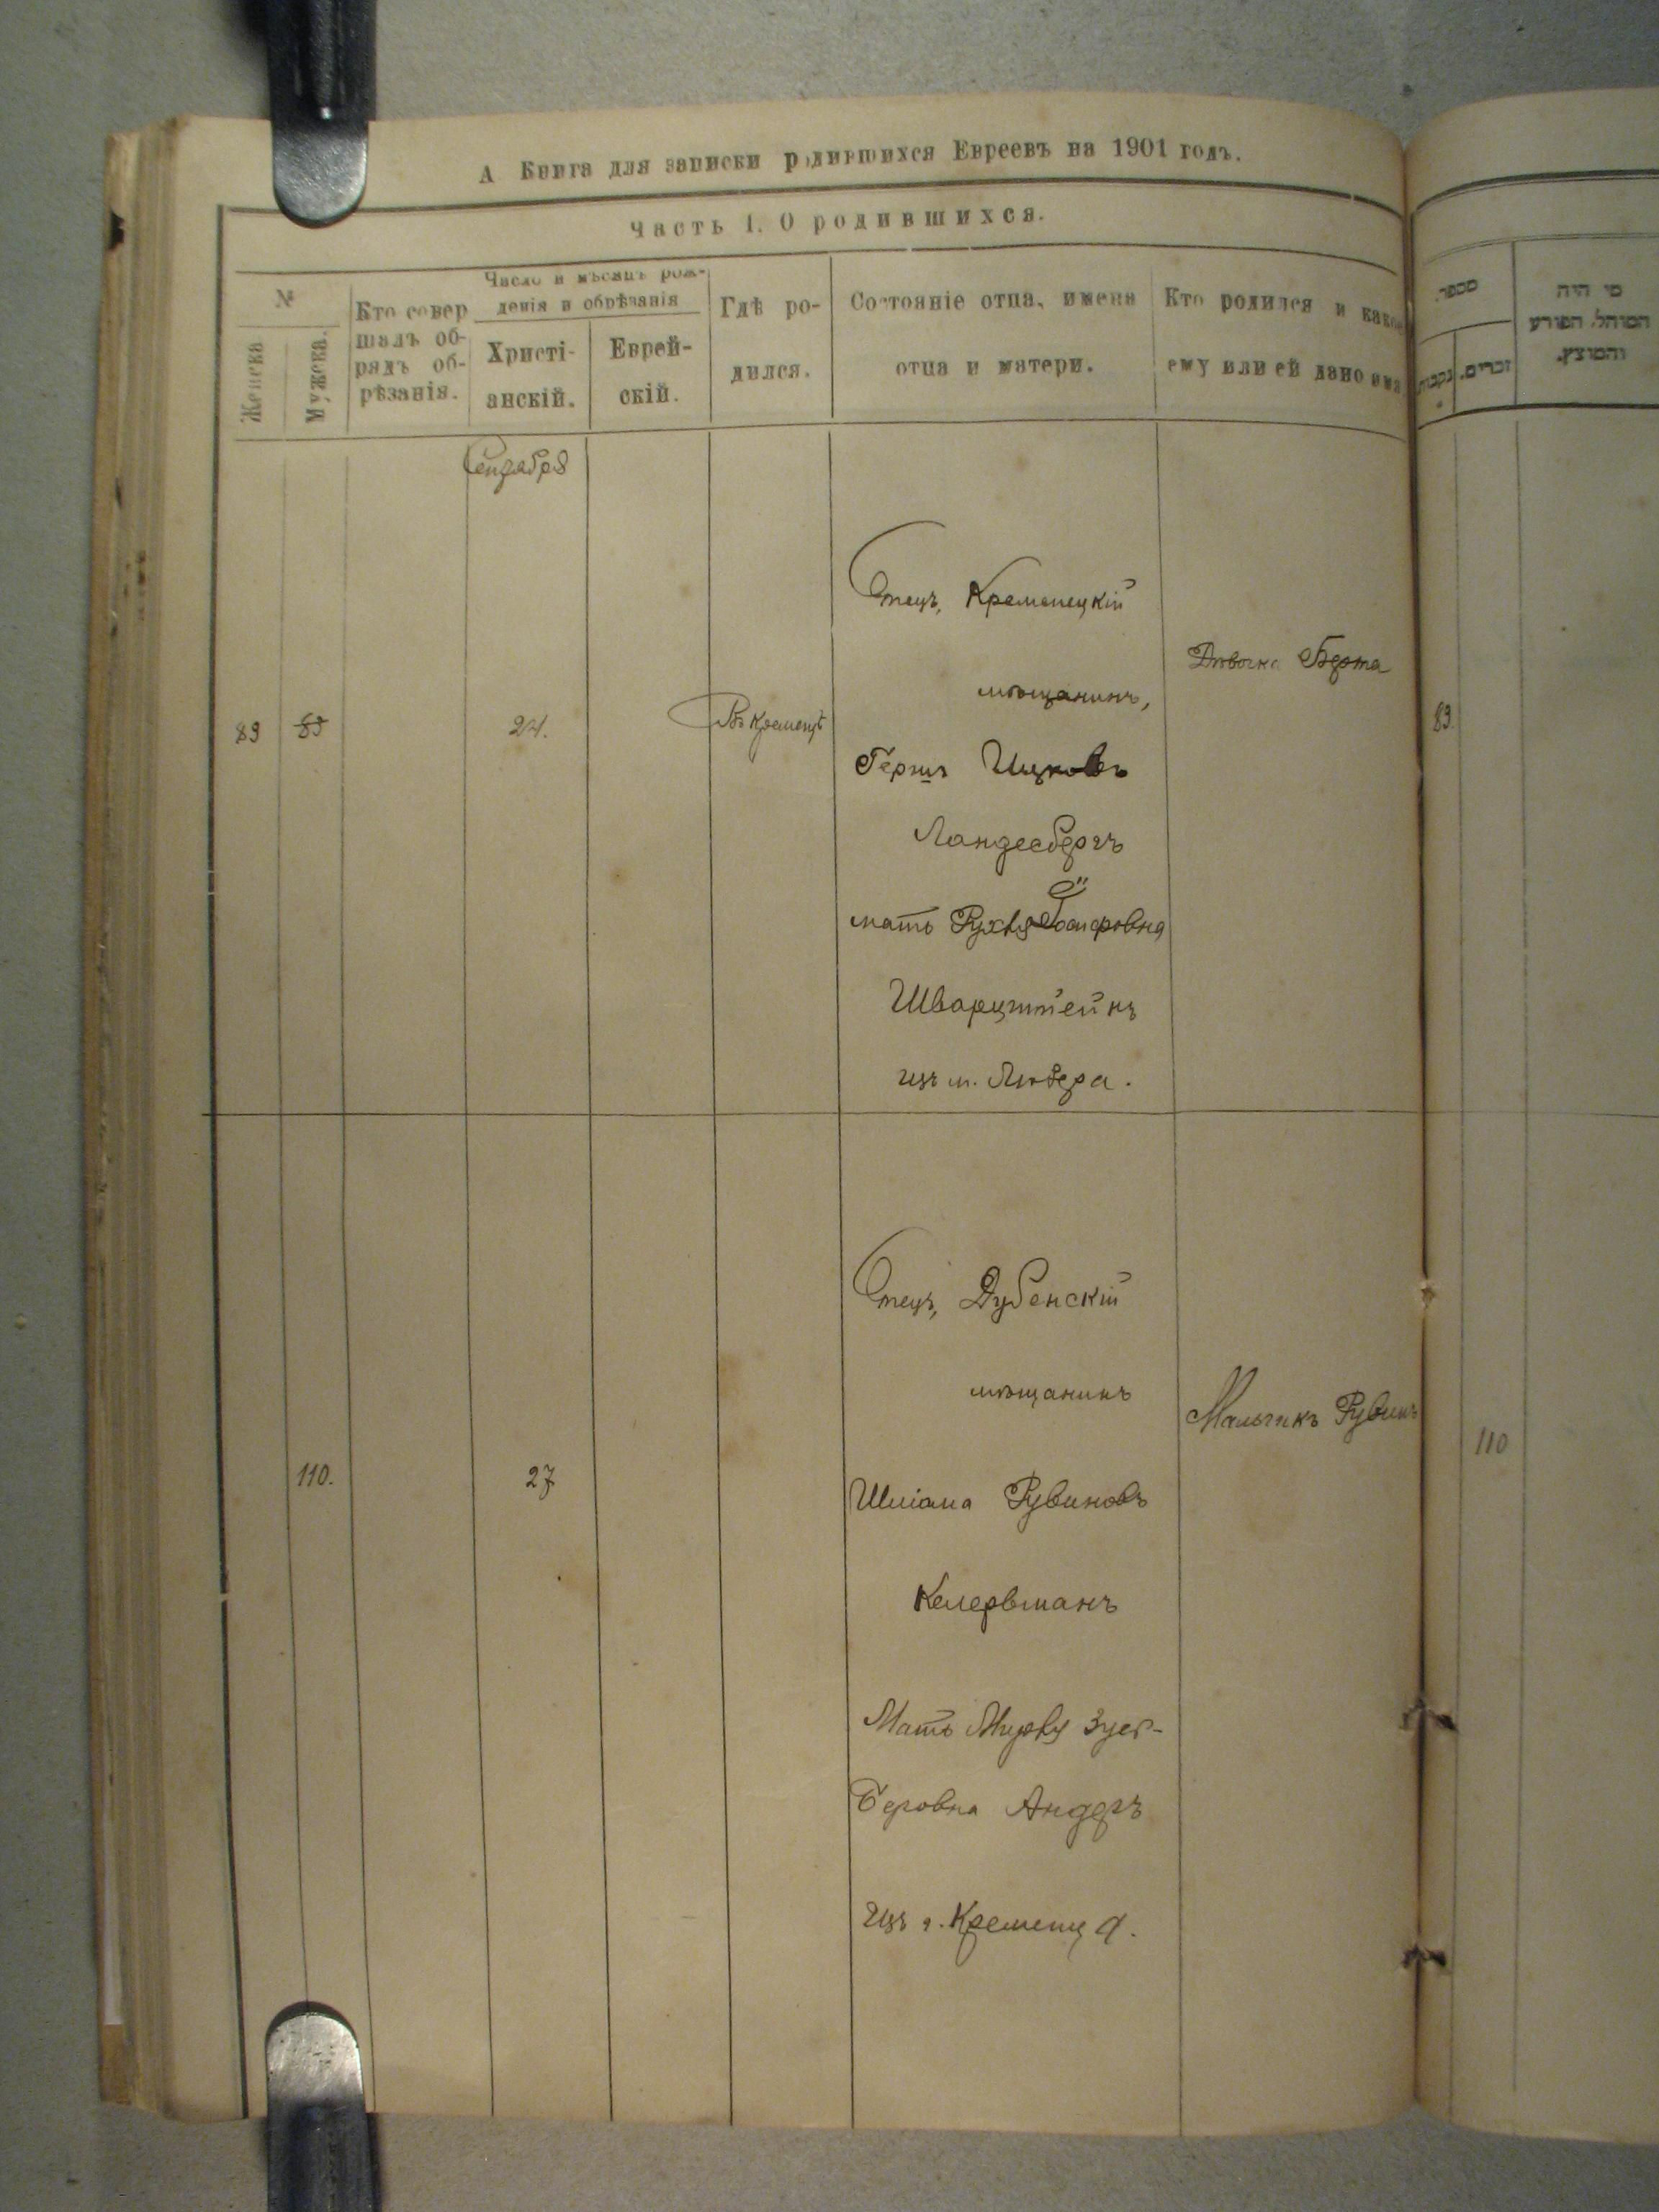 А Книга для записки родившихся Евреевъ на 1901 годъ.
Часть 1. О родившихся.
№
Женска
Мужска.
Кто совер
шалъ об-
рядъ об-
рѣзанія.
Число и мѣсяцъ рож-
денія и обрѣзанія
Христі-
анскій.
Еврей-
скій.
Гдѣ ро-
дился.
Состояніе отца, имена
отца и матери.
Кто родился и какое
ему или ей дано имя
מספר.
נקבות
זכרים.
מי היה
המוהל, הפורע
והמוצץ.
Сентября
89
89
24.
Въ Кременцѣ
Отецъ, Кременецкій
мѣщанинъ,
Гершъ Ицковъ
Ландесбергъ
мать Рухля
Шварцштейнъ
изъ м.
Дѣвочка Берта
89.
110.
27
Отецъ, Дубенскій
мѣщанинъ
Шліома Рувиновъ
Келерманъ
Мать
Беровна
изъ г. Кременца.
Мальчикъ Рувинъ
110